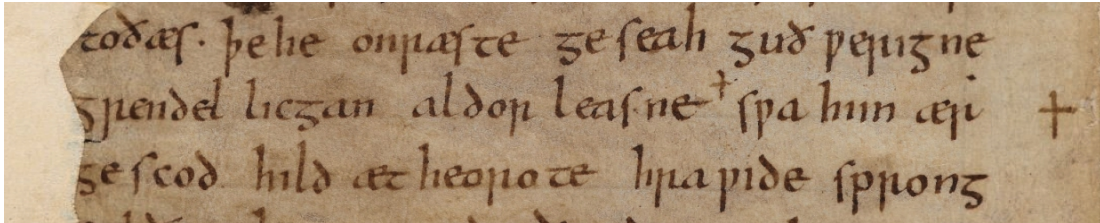 toðæs· þe he onræste ge seah guð ƿerigne
grendel licgan aldor leasne + sƿa him ær +
ge scod hild æt heorote hra ƿide sprong